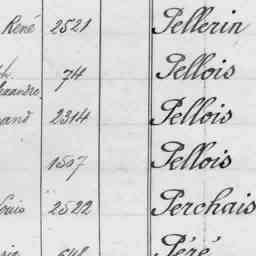 René 2521 Pellerin
74 Pellois
exandre
and 2314 Pellois
1507 Pellois
Louis 2522 Perchais
548 Péré